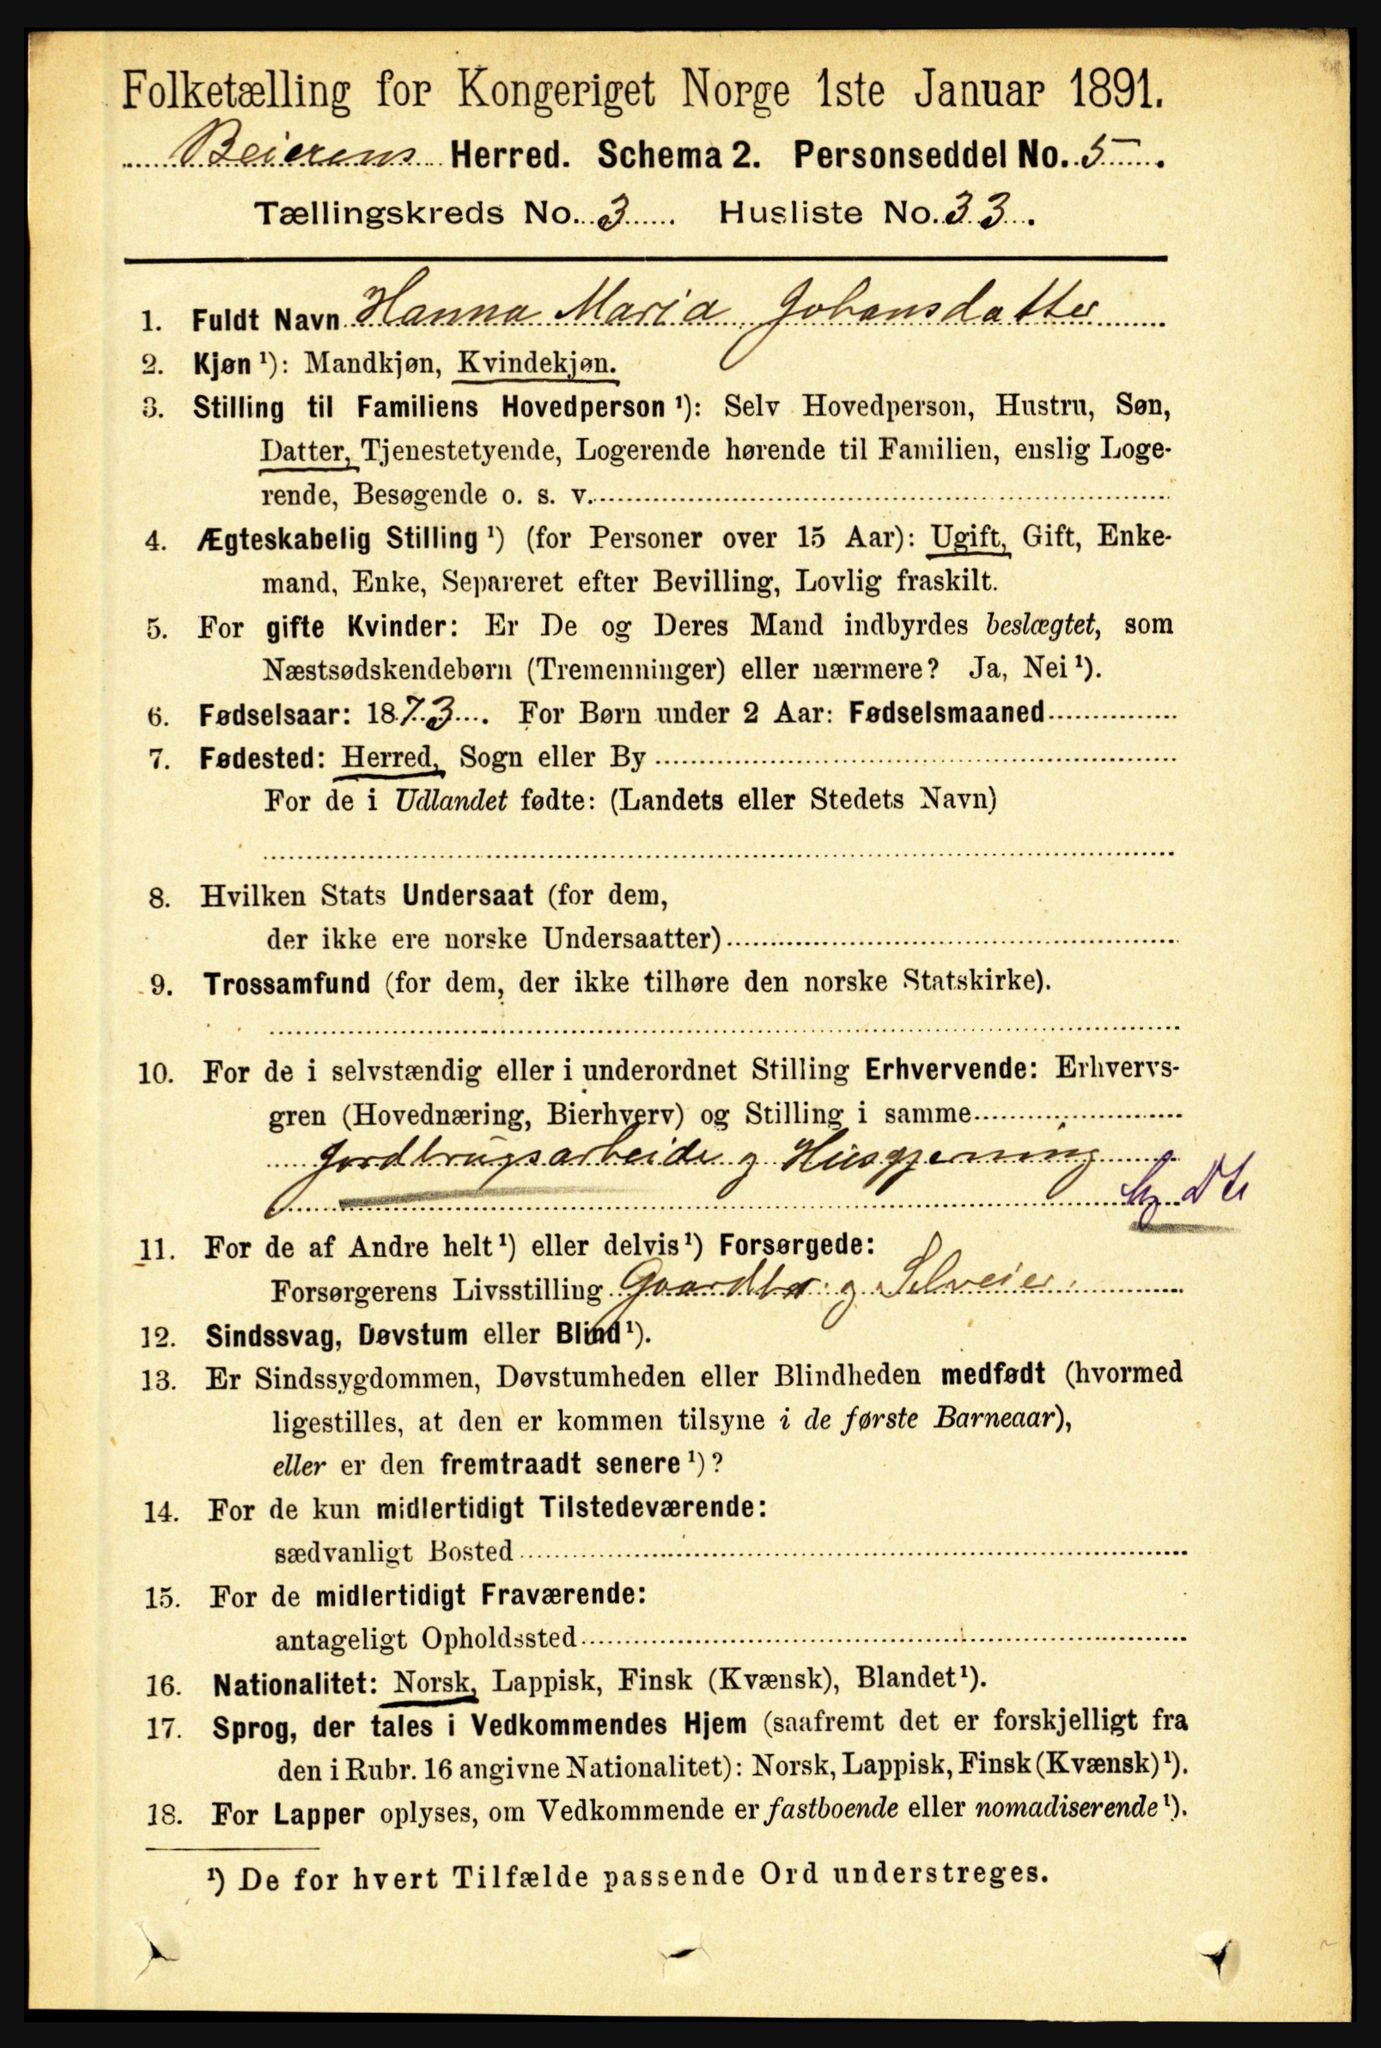 Folketælling for Kongeriget Norge 1ste Januar 1891.
Beierens Herred. Schema 2. Personseddel No. 5.
Tællingskreds No. 3. Husliste No. 33.
1. Fuldt Navn Hanna Maria Johansdatter
2. Kjøn ¹): Mandkjøn, Kvindekjøn.
3. Stilling til Familiens Hovedperson ¹): Selv Hovedperson, Hustru, Søn,
Datter, Tjenestetyende, Logerende hørende til Familien, enslig Loge-
rende, Besøgende o. s. v.
4. Ægteskabelig Stilling ¹) (for Personer over 15 Aar): Ugift, Gift, Enke-
mand, Enke, Separeret efter Bevilling, Lovlig fraskilt.
5. For gifte Kvinder: Er De og Deres Mand indbyrdes beslægtet, som
Næstsødskendebørn (Tremenninger) eller nærmere? Ja, Nei ¹).
6. Fødselsaar: 1873. For Børn under 2 Aar: Fødselsmaaned
7. Fødested: Herred, Sogn eller By
For de i Udlandet fødte: (Landets eller Stedets Navn)
8. Hvilken Stats Undersaat (for dem,
der ikke ere norske Undersaatter)
9. Trossamfund (for dem, der ikke tilhøre den norske Statskirke).
10. For de i selvstændig eller i underordnet Stilling Erhvervende: Erhvervs-
gren (Hovednæring, Bierhverv) og Stilling i samme
Jordbrugsarbeide og Husgjerning
11. For de af Andre helt ¹) eller delvis ¹) Forsørgede:
Forsørgerens Livsstilling Gaardbr. og Selveier.
12. Sindssvag, Døvstum eller Blind ¹).
13. Er Sindssygdommen, Døvstumheden eller Blindheden medfødt (hvormed
ligestilles, at den er kommen tilsyne i de første Barneaar),
eller er den fremtraadt senere ¹)?
14. For de kun midlertidigt Tilstedeværende:
sædvanligt Bosted
15. For de midlertidigt Fraværende:
antageligt Opholdssted
16. Nationalitet: Norsk, Lappisk, Finsk (Kvænsk), Blandet ¹).
17. Sprog, der tales i Vedkommendes Hjem (saafremt det er forskjelligt fra
den i Rubr. 16 angivne Nationalitet): Norsk, Lappisk, Finsk (Kvænsk) ¹).
18. For Lapper oplyses, om Vedkommende er fastboende eller nomadiserende ¹).
¹) De for hvert Tilfælde passende Ord understreges.